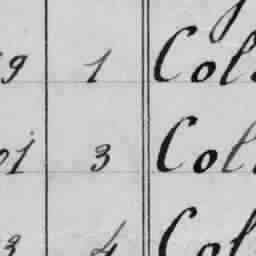 9 1 Col
01 3 Col
3 4 Col